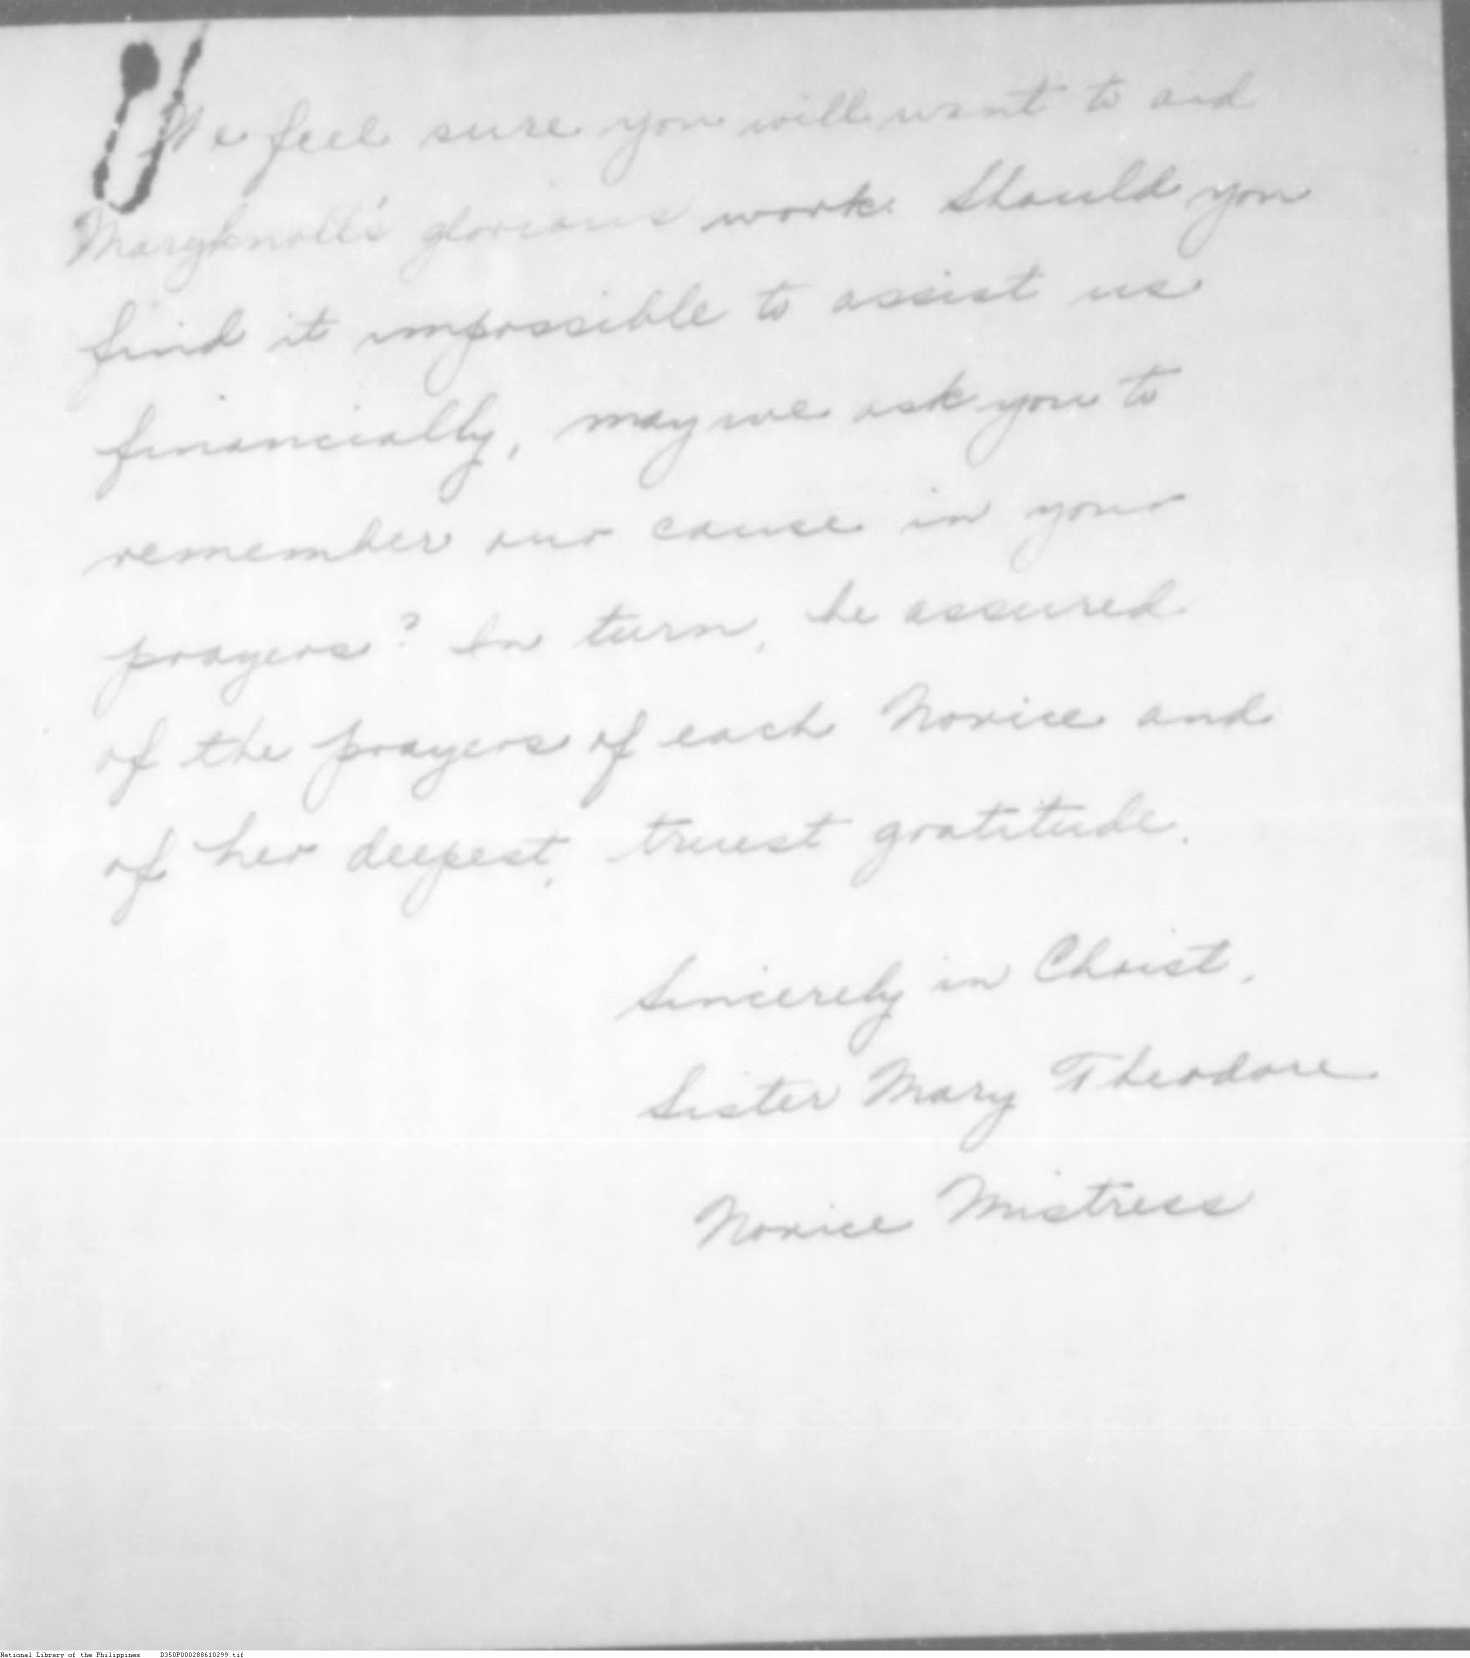 We feel sure you will want to aid
Maryknoll's glorious work. Should you
find it impossible to assist us
financially, may we ask you to
remember our cause in your
prayers? In turn, be assured
of the prayers of each Novice and
of her deepest, truest gratitude.
Sincerely in Christ,
Sister Mary Theodore
Novice Mistress
National Library of the Philippines D350P000288610299.tif